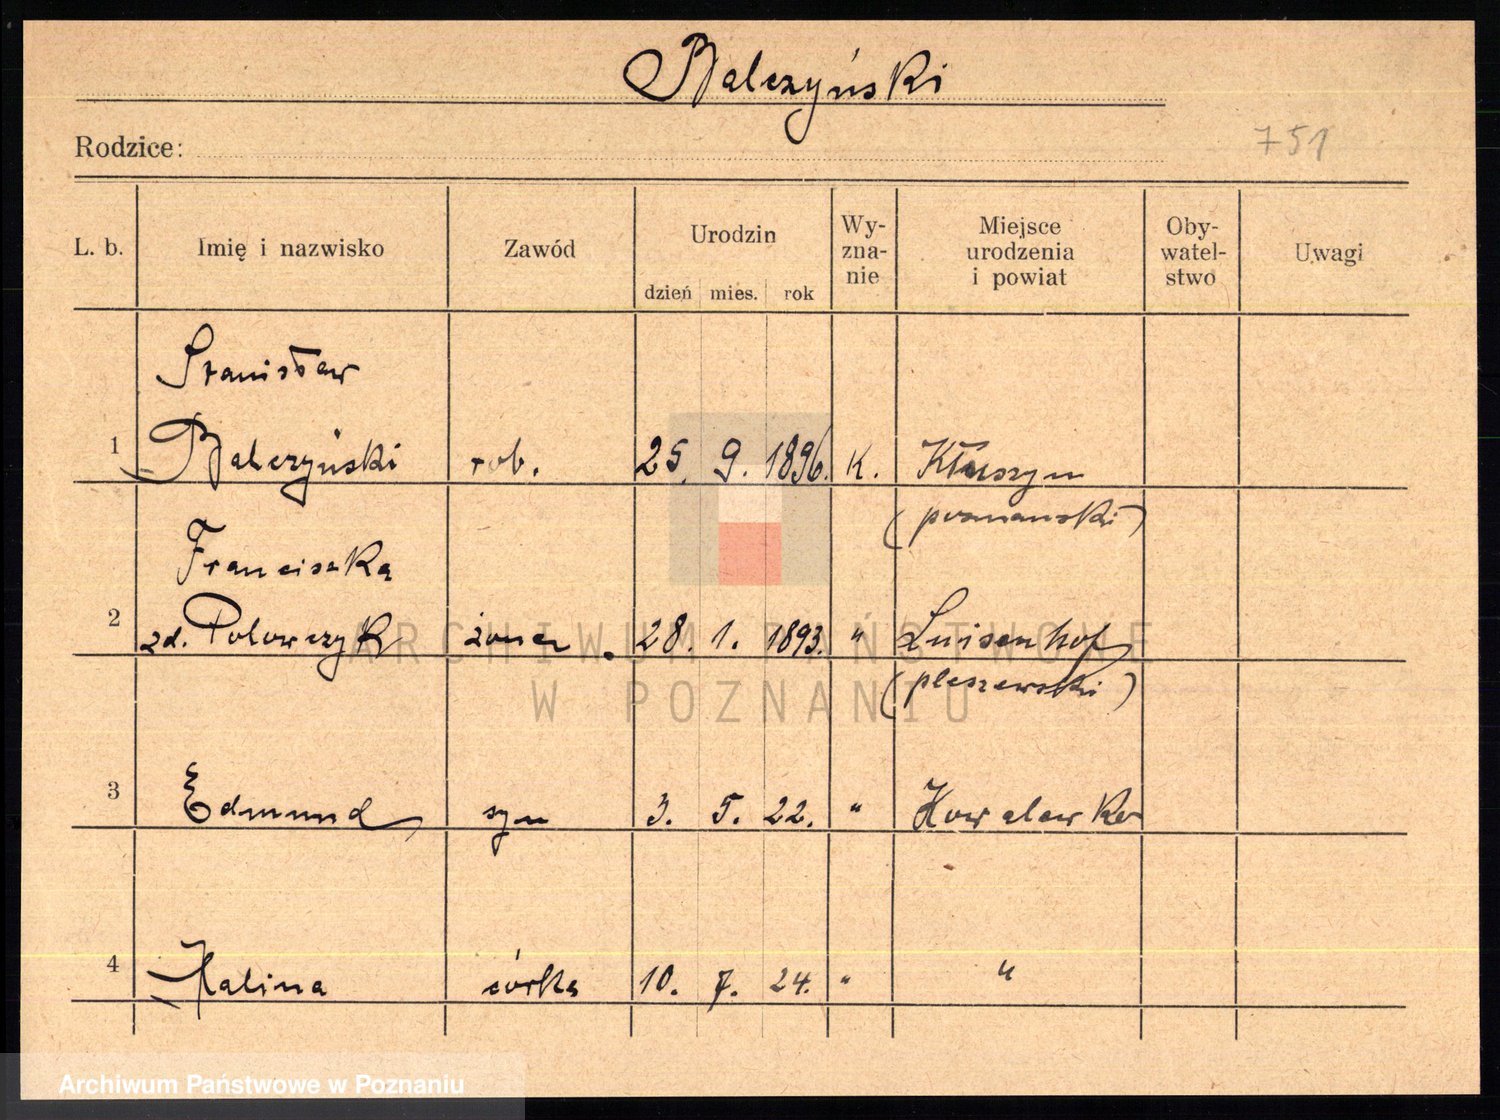 Balczyński
Rodzice:
751
L. b. Imię i nazwisko Zawód Urodzin dzień mies. rok Wy-zna-nie Miejsce urodzenia i powiat Oby-watel-stwo Uwagi
Stanisław
1 Balczyński rob. 25. 9. 1896. k. Kłuszyn
(poznański)
Franciszka
2 zd. Polowczyk żona 28. 1. 1893. " Luisenhof
(pleszewski)
3 Edmund syn 3. 5. 22. " Kowalewko
4 Halina córka 10. 7. 24. " "
ARCHIWUM PAŃSTWOWE
W POZNANIU
Archiwum Państwowe w Poznaniu